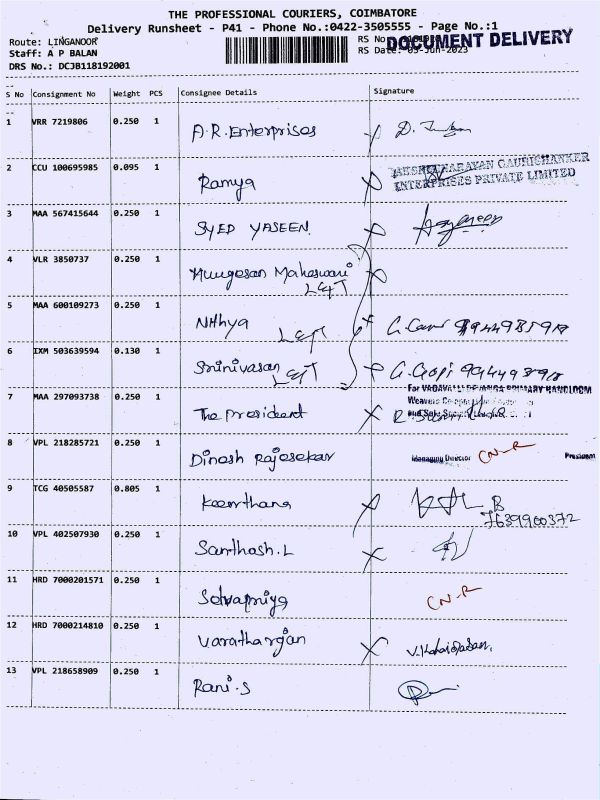 THE PROFESSIONAL COURIERS, COIMBATORE
Delivery Runsheet - P41 - Phone No.:0422-3505555 - Page No.:1
Route: LINGANOOR
RS No
DOCUMENT DELIVERY
Staff: A P BALAN
RS Date: 05-Jun-2023
DRS No.: DCJB118192001
S No Consignment No Weight PCS Consignee Details Signature
1 VRR 7219806 0.250 1 A.R.Enterprises
2 CCU 100695985 0.095 1 Ramya
LAKSHMI NARAYAN GAURISHANKER
ENTERPRISES PRIVATE LIMITED
3 MAA 567415644 0.250 1 SYED YASEEN
4 VLR 3850737 0.250 1 Murugesan Maheswari
LEFT
5 MAA 600109273 0.250 1 Nithya LEFT
6 IXM 503639594 0.130 1 Srinivasan LEFT G. Gopi
For VADAVALLI DEVANGA PRIMARY HANDLOOM
7 MAA 297093738 0.250 1 The president
Weavers
8 VPL 218285721 0.250 1 Dinesh Rajasekar
Managing Director CN-R President
9 TCG 40505587 0.805 1 Keerthana
7639900372
10 VPL 402507930 0.250 1 Santhosh.L
11 HRD 7000201571 0.250 1 Selvapriya CN-R
12 HRD 7000214810 0.250 1 Varatharajan
13 VPL 218658909 0.250 1 Rani.S